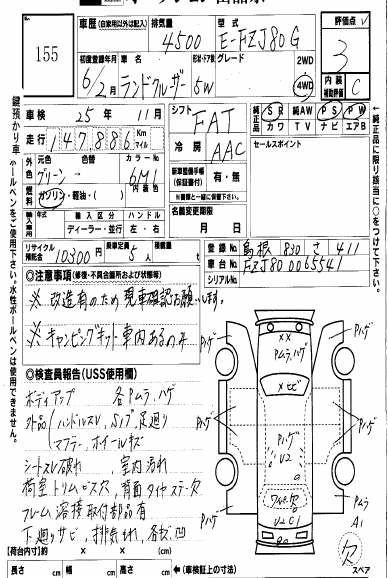 155
車歴 (自家用以外は記入) 排気量 型式 評価点
4500 E-FZJ80G
3
初度登録年月 車名 形状・ドア数 グレード 2WD 4WD
6/2月 ランドクルーザー 5W
内装 補助評価 C
車検 25年 11月
シフト FAT
純正品 SR 純AW PS PW
カワ TV ナビ エアB
走行 147,886 Km マイル
冷房 AAC
セールスポイント
外色 元色 色替 カラーNo
グリーン→ 6M1
内装色
新車整備手帳 (保証書付) 有・無
燃料 ガソリン・軽油・( )
輸入車 年式 輸入区分 ハンドル
ディーラー・並行 左・右
名義変更期限
月 日
リサイクル預託金 10300円 乗車定員 5人 積載量 t
登録No 島根 830 さ 411
車台No FZJ80 0065541
シリアルNo
◎注意事項 (修復・不具合箇所および状態等)
※ 改造有のため 現車確認お願いします。
※ キャンピングキット 車内あるのみ
◎検査員報告 (USS使用欄)
ボディアップ 各Pムラ、ハゲ
外品 (ハンドルスレ, Sップ, 足廻り
マフラー ホイールキズ
シートスレ破れ 室内汚れ
荷室トリムビス穴, 背面タイヤステー欠
フレーム溶接取付部品有
下廻りサビ, 排気もれ, 各キズ凹
[荷台内寸] 長さ cm 幅 cm 高さ cm
←(車検証上の寸法)
鍵預かり車
ボールペンをご使用下さい。水性ボールペンは使用できません。
純正品に限り該当に○をつけて下さい。
XX
Pムラ,ハゲ
X ヒビ
Pハゲ
Pハゲ
Pハゲ
U2
Pハゲ
Pハゲ
ワレ欠
U2 C1
Pムラ
A1
欠
スペア